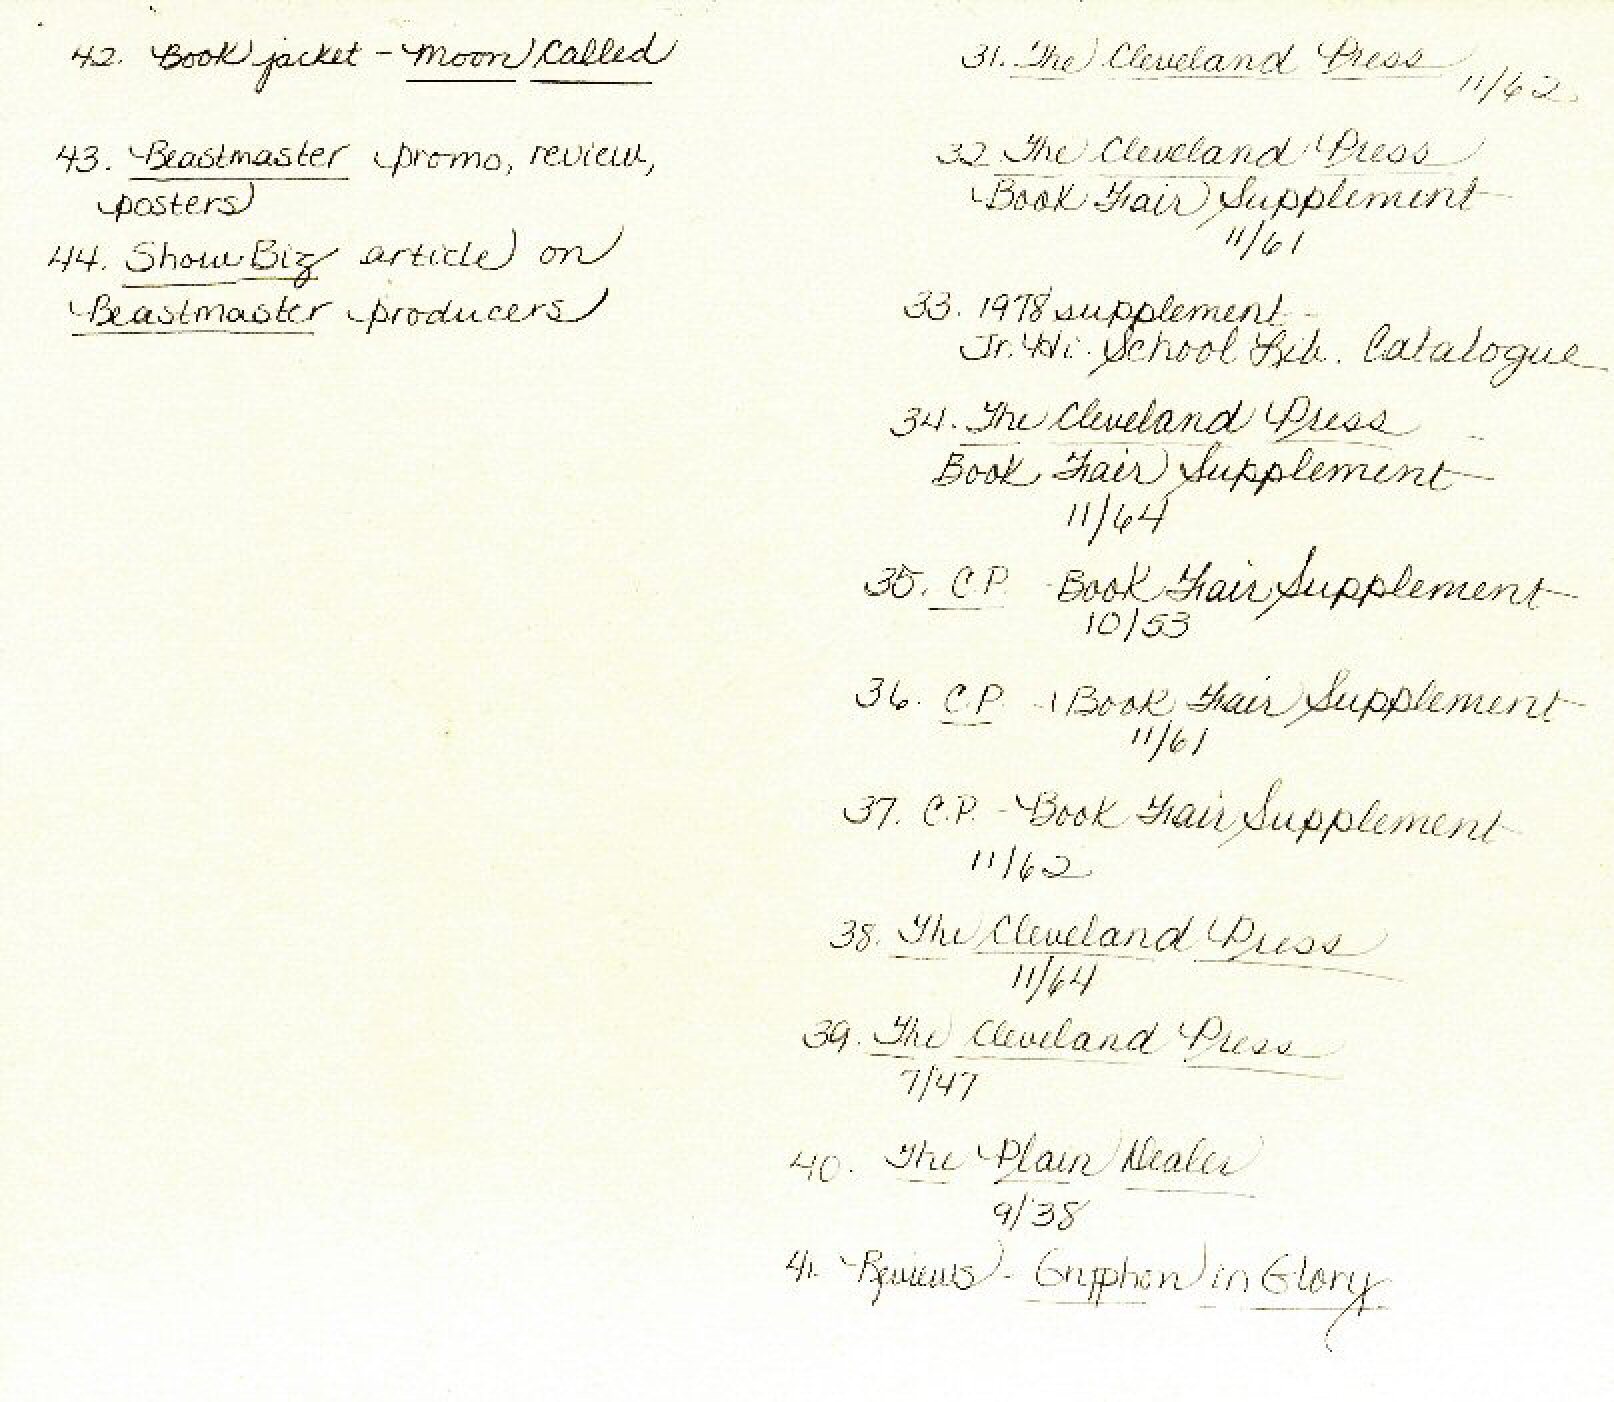 42. Book jacket - Moon Called
43. Beastmaster promo, review,
posters
44. Show Biz article on
Beastmaster producers
31. The Cleveland Press
11/62
32 The Cleveland Press
Book Fair Supplement
11/61
33. 1978 supplement
Jr. Hi. School Lib. Catalogue
34. The Cleveland Press
Book Fair Supplement
11/64
35. C.P. - Book Fair Supplement
10/53
36. C.P. - Book Fair Supplement
11/61
37. C.P. - Book Fair Supplement
11/62
38. The Cleveland Press
11/64
39. The Cleveland Press
7/47
40. The Plain Dealer
9/38
41. Reviews - Gryphon in Glory